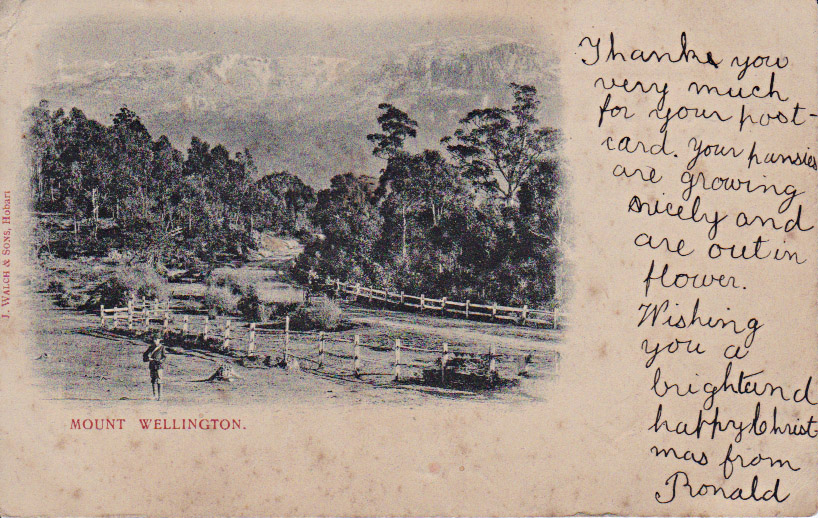 J. WALCH & SONS, Hobart
MOUNT WELLINGTON.
Thanks you
very much
for your post-
card. Your pansies
are growing
nicely and
are out in
flower.
Wishing
you a
bright and
happy Christ-
mas from
Ronald